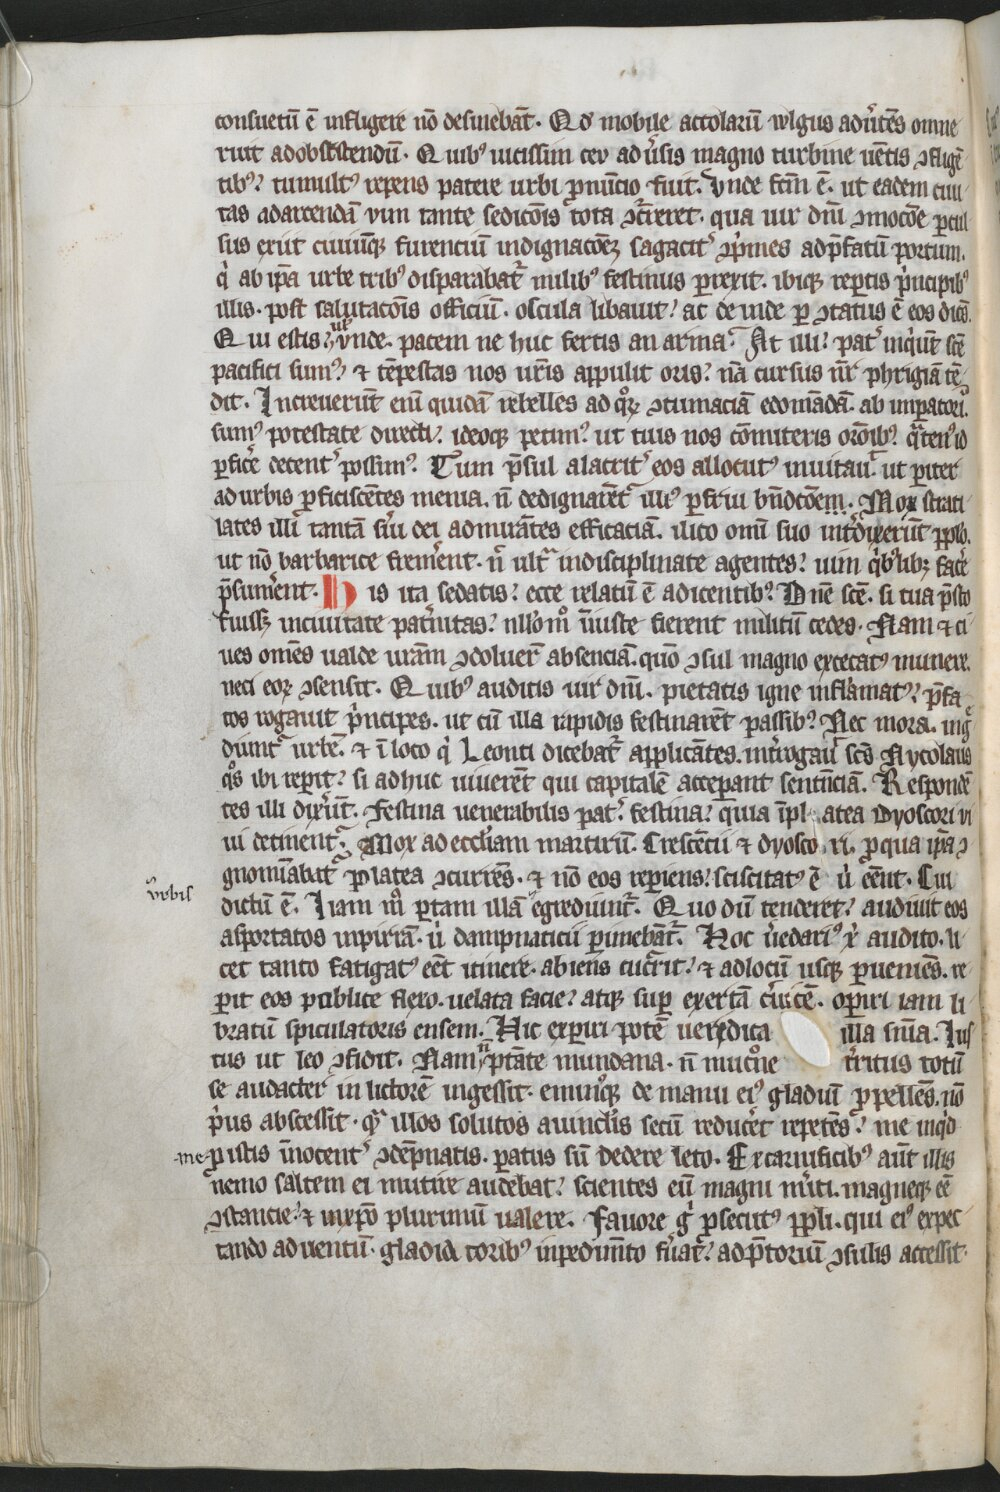 consuetū ē infligere nō desinebāt. Qd mobile accolarū wlgus adu͛tēs omne
ruit adobsistendū. Quibꝰ uicissim ceu adu͛sis magno turbine uētis ꝯfligē
tibꝰ? tumultꝰ repens patere urbi p̄nūcio fuit. Vnde fctm̄ ē. ut eadem ciui
tas adarcendā uim tante sedicōis tota ꝯc͛reret. qua uir dn̄i ꝯmocōe ꝑcul
sus exiit ciuiūqꝫ furenciū indignacōeꝫ sagacit͛ ꝯp̄mes adp̄fatū portum.
q͛ ab ip̄a urbe tribꝰ disparabat͛ milibꝰ festinus ꝑrexit. ibiqꝫ reꝑtis p͛ncipibꝰ
illis. post salutacōis officiū. oscula libauit? ac deinde ꝑ ꝯtatus ē eos dicēs.
Qui estis? ul̛ vnde. pacem ne huc fertis an arma? At illi? pat͛ inq͛ūt scē
pacifici sumꝰ? ⁊ tēpestas nos ur̄is appulit oris? nā cursus nr̄ phrigiā tē
dit. Increuerūt eni quidā rebelles ad qͦꝝ ꝯtumaciā edomādā. ab imꝑatoriꝰ
sumꝰ potestate directi. ideoqꝫ petimꝰ. ut tuis nos cōmiteris orōibꝰ. q͛tenꝰ id
ꝑfic͛e decent͛ possimꝰ. Tum p̄sul alacrit͛ eos allocutꝰ inuitau͛ ut ꝑiter
ad urbis ꝓficiscētes menia. n̄ dedignarēt͛ illiꝰ ꝑfrui bn̄dcōem. Mox strati
lates illi tantā s͛ui dei admirātes efficaciā. ilico omi suo int͛dixerūt pplo.
ut nō barbarice frem͛ent. n̄ ult͛ indisciplinate agentes? uim q͛bꝰlibꝫ fac͛e
p̄sum͛ent. His ita sedatis? ecce relatū ē adicentibꝰ? Dn̄e scē. si tua p̄sto
fuissꝫ inciuitate pat͛nitas? nllōmͦ īiuste fierent militū cedes. Nam ⁊ ci
ues omēs ualde urām ꝯdoluer͛ absenciā. quō ꝯsul magno excecatꝰ munere.
neci eoꝝ ꝯsensit. Quibꝰ auditis uir dn̄i. pietatis igne inflāmatꝰ? p̄fa
tos rogauit p͛ncipes. ut cū illa rapidis festinarēt passibꝰ? Nec mora. ingͤ
diunt͛ urbē. ⁊ ī loco q͛ Leonti dicebat͛ applicātes. int͛rogau͛ scs̄ Nycolaus
qͦs ibi reꝑit? si adhuc uiuerēt qui capitalē acceꝑant sentn̄ciā. Respondē
tes illi dix͛ūt. Festina uenerabilis pat͛. festina? quia īpl atea Dyoscori vi
ui detinent͛. Mox ad eccl͛iam martirū. Crescētii ⁊ dyosco ri. ꝓ qua ip̄a ꝯ
gnomīabat͛ platea ꝯcurrēs. ⁊ nō eos reꝑiens? sciscitatꝰ ē u͛ eēnt. Cui
vrbis
dictū ē. Iam mͦ ꝑtam illā egrediunt͛. Quo dū tenderet? audiuit eos
asportatos inpiriā. u͛ dampnaticii ꝑimebāt͛. Hoc u͛edariꝰ x͛ audito. li
cet tanto fatigatꝰ eēt itinere. abiens cuc͛rit? ⁊ adlocū usqꝫ ꝑueniēs. re
ꝑit eos poblite flexo. uelata facie? atqꝫ suꝑ exertā c͛uicē. oꝑiri iam li
bratū spiculatoris ensem. Hic exꝑiri potē ueredica illa sn̄ia. Ius
tus ut leo ꝯfidit. Nam n̄ ptāte mundana. n̄ mucōne t͛ritus totū
se audacter in lictorē ingessit. eminꝰqꝫ de manu eiꝰ gladiū ꝓpellēs. nō
p͛us abscessit. qͣ illos solutos auinclis secū reduc͛et repetēs? me inq͛d
me ꝓ istis īnocent͛ ꝯdēpnatis. ꝑatus sū dedere leto. Ex carnificibꝰ aūt illis
nemo saltem ei mutire audebat? scientes eū magni m͛iti. magneqꝫ eē
ꝯstancie? ⁊ inxp̄o plurimū ualere. Fauore g͛ ꝓsecutꝰ ppli. qui eiꝰ expec
tando aduentū. gladia toribꝰ inpedimto fu͛at? adp̄toriū ꝯsulis accessit.